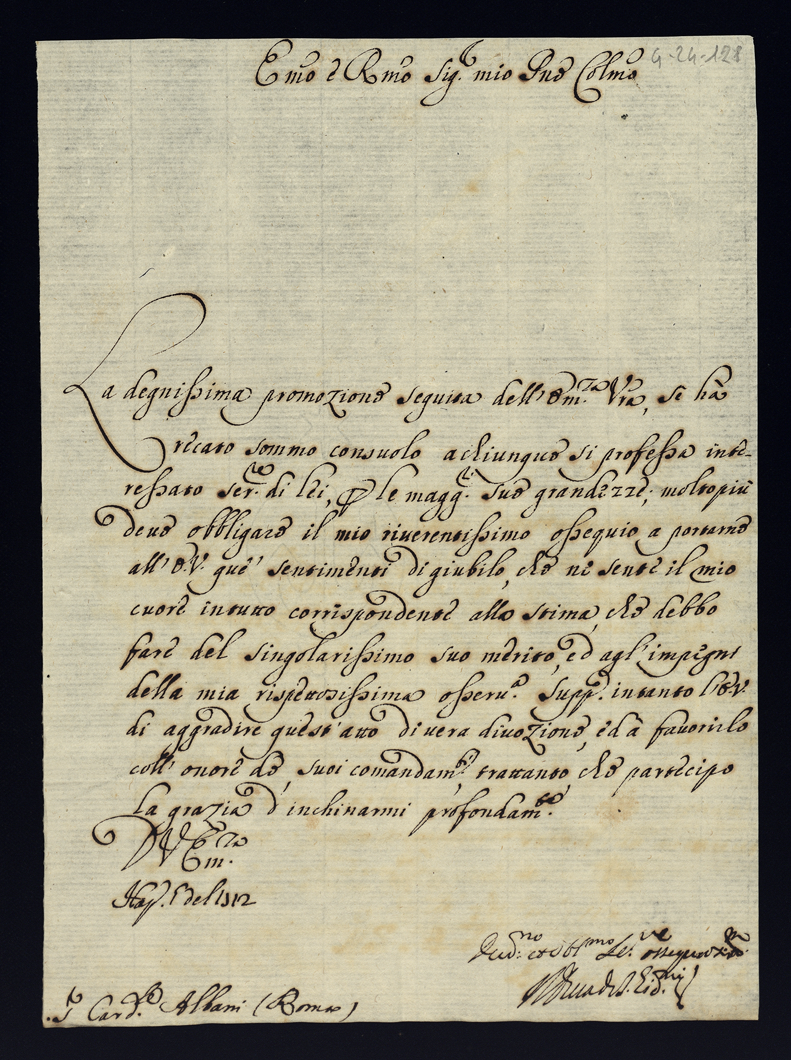 Emo e Rmo Sig.r mio Pne Colmo
4-24-128
La degnissima promozione seguita dell'Em.za Vra, se hà
recato sommo consuolo achiunque si professa inte-
ressato ser.re di lei, p le magg.ri sue grandezze; molto più
deve obbligare il mio riverentissimo ossequio a portarne
all'E.V. que' sentimenti di giubilo, che ne sente il mio
cuore intutto corrispondente alla stima, che debbo
fare del singolarissimo suo merito, ed agl'impegni
della mia rispettosissima osseru.a Supp.o intanto l'E.V.
di aggradire quest'atto di vera divozione, ed à favorirlo
coll'onore de suoi comandam.ti, trattanto che partecipo
la grazia d'inchinarmi profondam.te
D V Em.za
Nap. P del 1712
Devd.mo et obl.mo Se.re osseq.mo
S.r Card.le Albani (Roma)